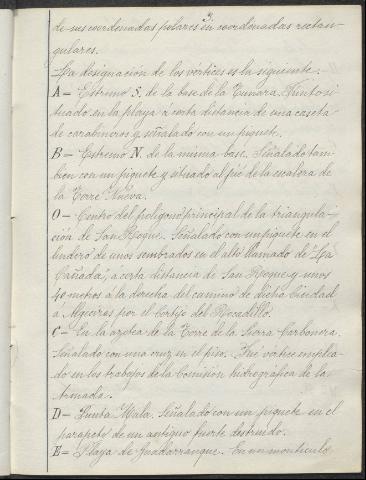 de sus coordenadas polares en coordenadas rectan-
gulares.
La designación de los vértices es la siguiente:
A = Estremo S. de la base de la Tunara. Punto si-
tuado en la playa á corta distancia de una caseta
de carabineros y señalado con un piquete.
B = Estremo N. de la misma base. Señalado tam-
bien con un piquete y situado al pié de la escalera de
la Torre Nueva.
O = Centro del polígono principal de la triangula-
ción de San Roque. Señalado con un piquete en el
lindero de unos sembrados en el alto llamado de "La
Cañada", a corta distancia de San Roque y unos
40 metros á la derecha del camino de dicha Ciudad
á Algeciras por el Cortijo del Rocadillo.
C = En la azotea de la Torre de la Sierra Carbonera.
Señalado con una cruz en el piso. Fué vértice emplea-
do en los trabajos de la Comisión hidrográfica de la
Armada.
D = Punta Mala. Señalado con un piquete en el
parapeto de un antiguo fuerte destruido.
E = Playa de Guadarranque. En un montículo